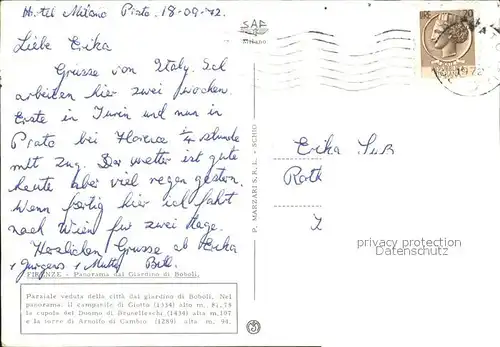 Hotel Milano Prato. 18-09-72.
Liebe Erika
Grusse von Italy. Sel
arbeiten hier zwei wochen.
Erste in Turin und nun in
Prato bei Florence 1/4 stunde
mit zug. Der wetter ist gute
heute aber viel regen gestern.
Wenn fertig hier ich fahrt
nach Wien fur zwei Tage.
Herzlichen Grusse ab Erika
+ Jurgens + Mutter Bill.
SAF
Milano
1972
Erika
Roth
privacy protection
Datenschutz
P. MARZARI S.R.L. - SCHIO
FIRENZE - Panorama dal Giardino di Boboli.
Parziale veduta della città dal giardino di Boboli. Nel
panorama: il campanile di Giotto (1334) alto m. 81,75
la cupola del Duomo di Brunelleschi (1434) alta m. 107
e la torre di Arnolfo di Cambio (1289) alta m. 94.